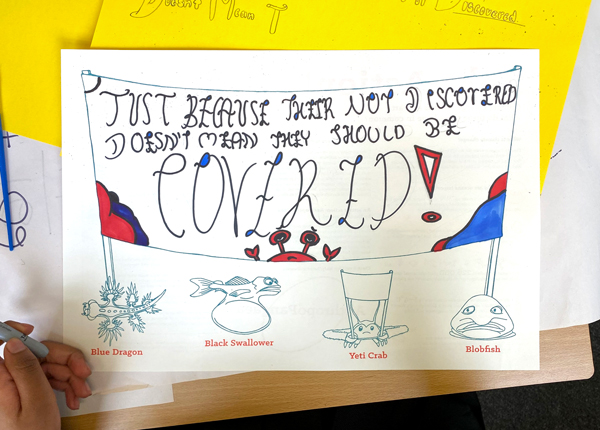 DOESNT MEAN T
DISCOVERED
JUST BECAUSE THEIR NOT DISCOVERED
DOESN'T MEAN THEY SHOULD BE
COVERED!
Blue Dragon
Black Swallower
Yeti Crab
Blobfish